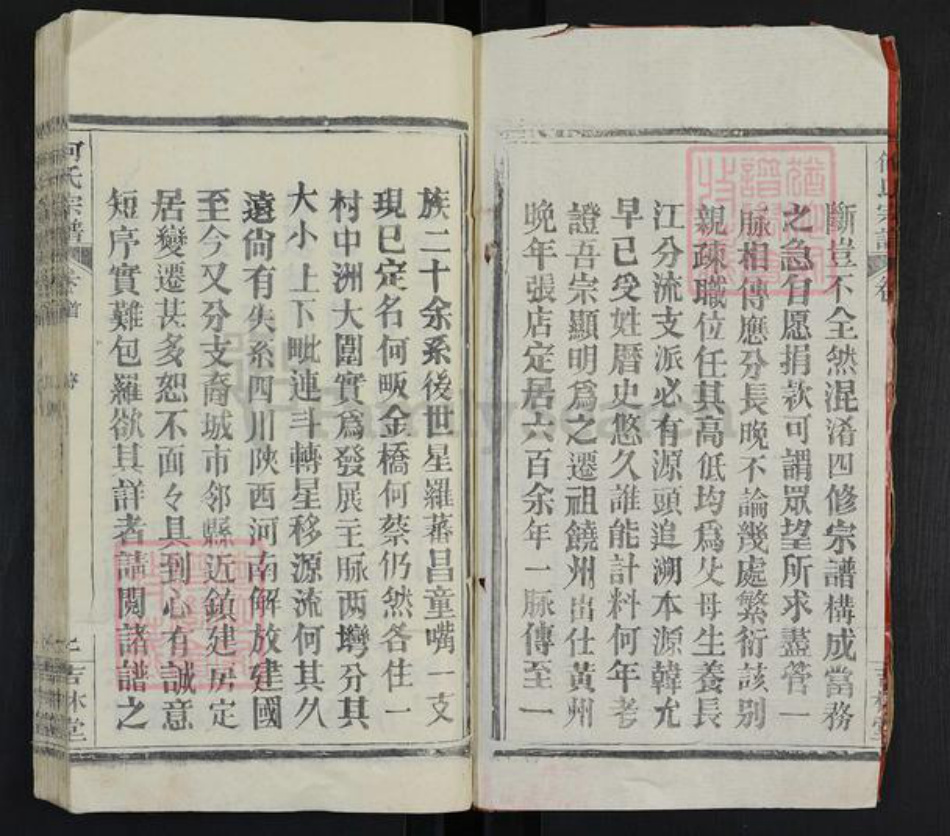 斷豈不全然混淆四修宗譜構成當務
之急自愿捐款可謂眾望所求盡管一
脉相傳應分長晚不論幾處繁衍該别
親疎職位任其高低均為父母生養長
江分流支派必有源頭追溯本源韓允
早已受姓曆史悠久誰能計料何年考
證吾宗顯明為之遷祖饒州出仕黃州
晚年張店定居六百余年一脉傳至一
族二十余系後世星羅蕃昌童嘴一支
現已定名何畈金橋何蔡仍然各住一
村中洲大圍實為發展主脉两塆分其
大小上下毗連斗轉星移源流何其久
遠尙有失系四川陝西河南解放建國
至今又分支裔城市邻縣近鎮建房定
居變遷甚多恕不面々具到心有誠意
短序實難包羅欲其詳者請閱諸譜之
何氏宗譜
卷首
序
吉林堂